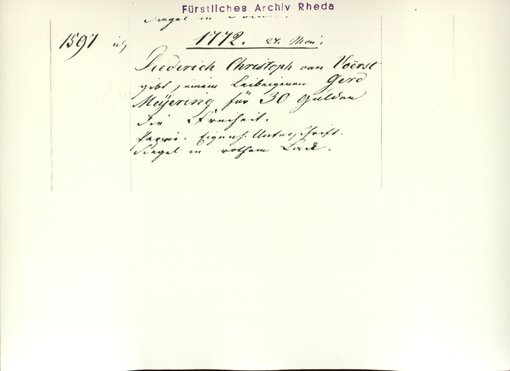 Fürstliches Archiv Rheda
Siegel in
1597
1772. 24. Mai.
Diederich Christoph van Voerst
gibt seinem Leibeigenen Gerd
Meyering für 30 Gulden
die Freiheit.
Papier. Eigenh. Unterschrift.
Siegel in rothem Lack.